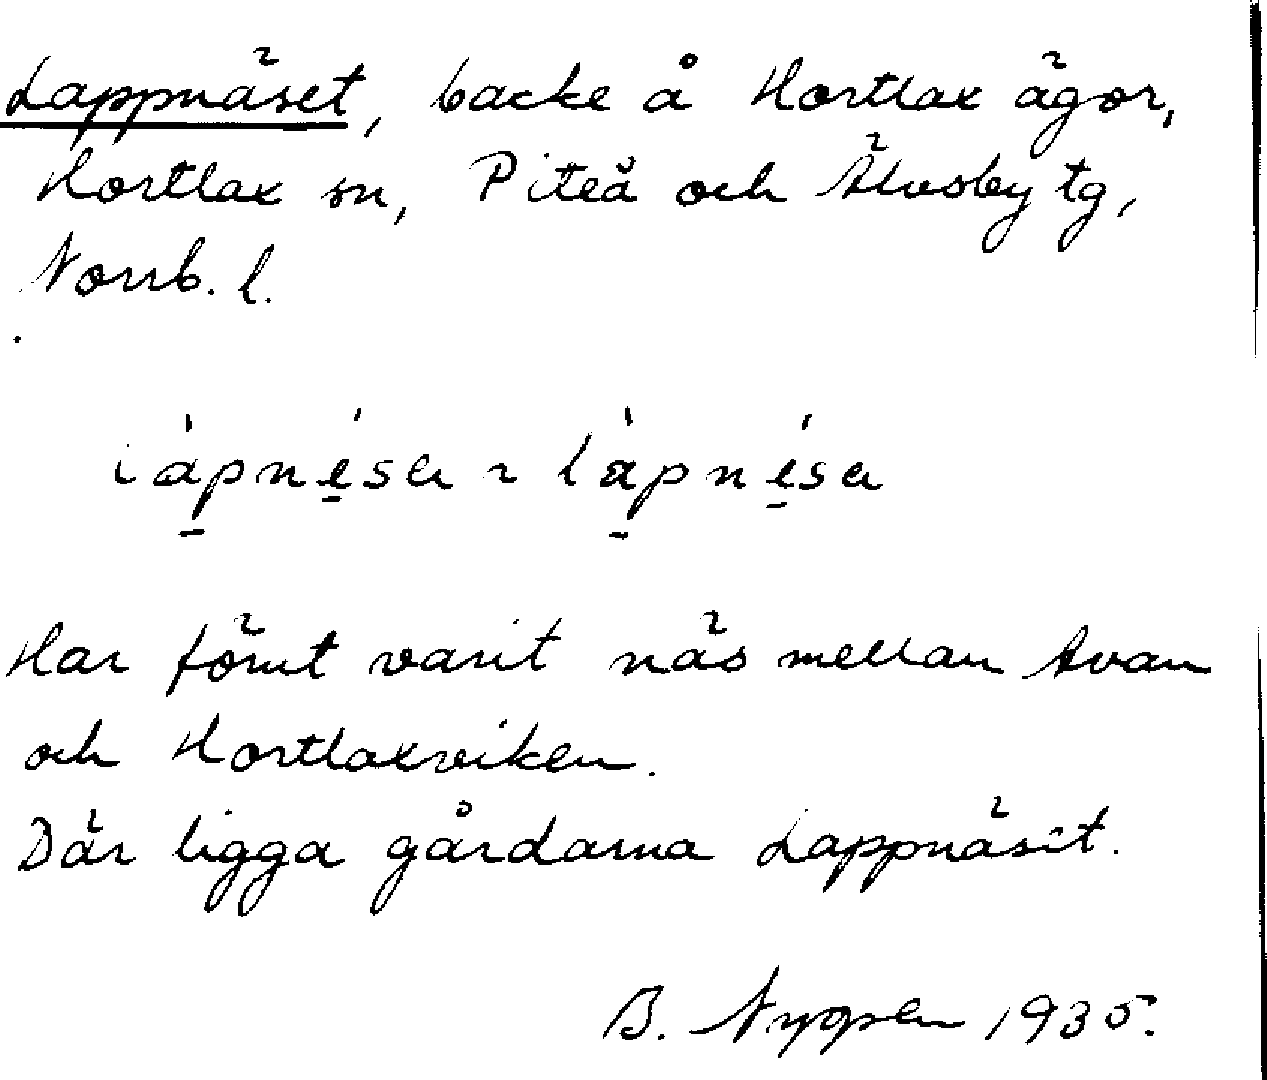 Lappnäset, backe å Hortlax ägor,
Hortlax sn, Piteå och Älvsby tg,
Norrb. l.
Har förut varit näs mellan Avan
och Hortlaxviken.
Där ligga gårdarna Lappnäset.
B. Nygren 1935.